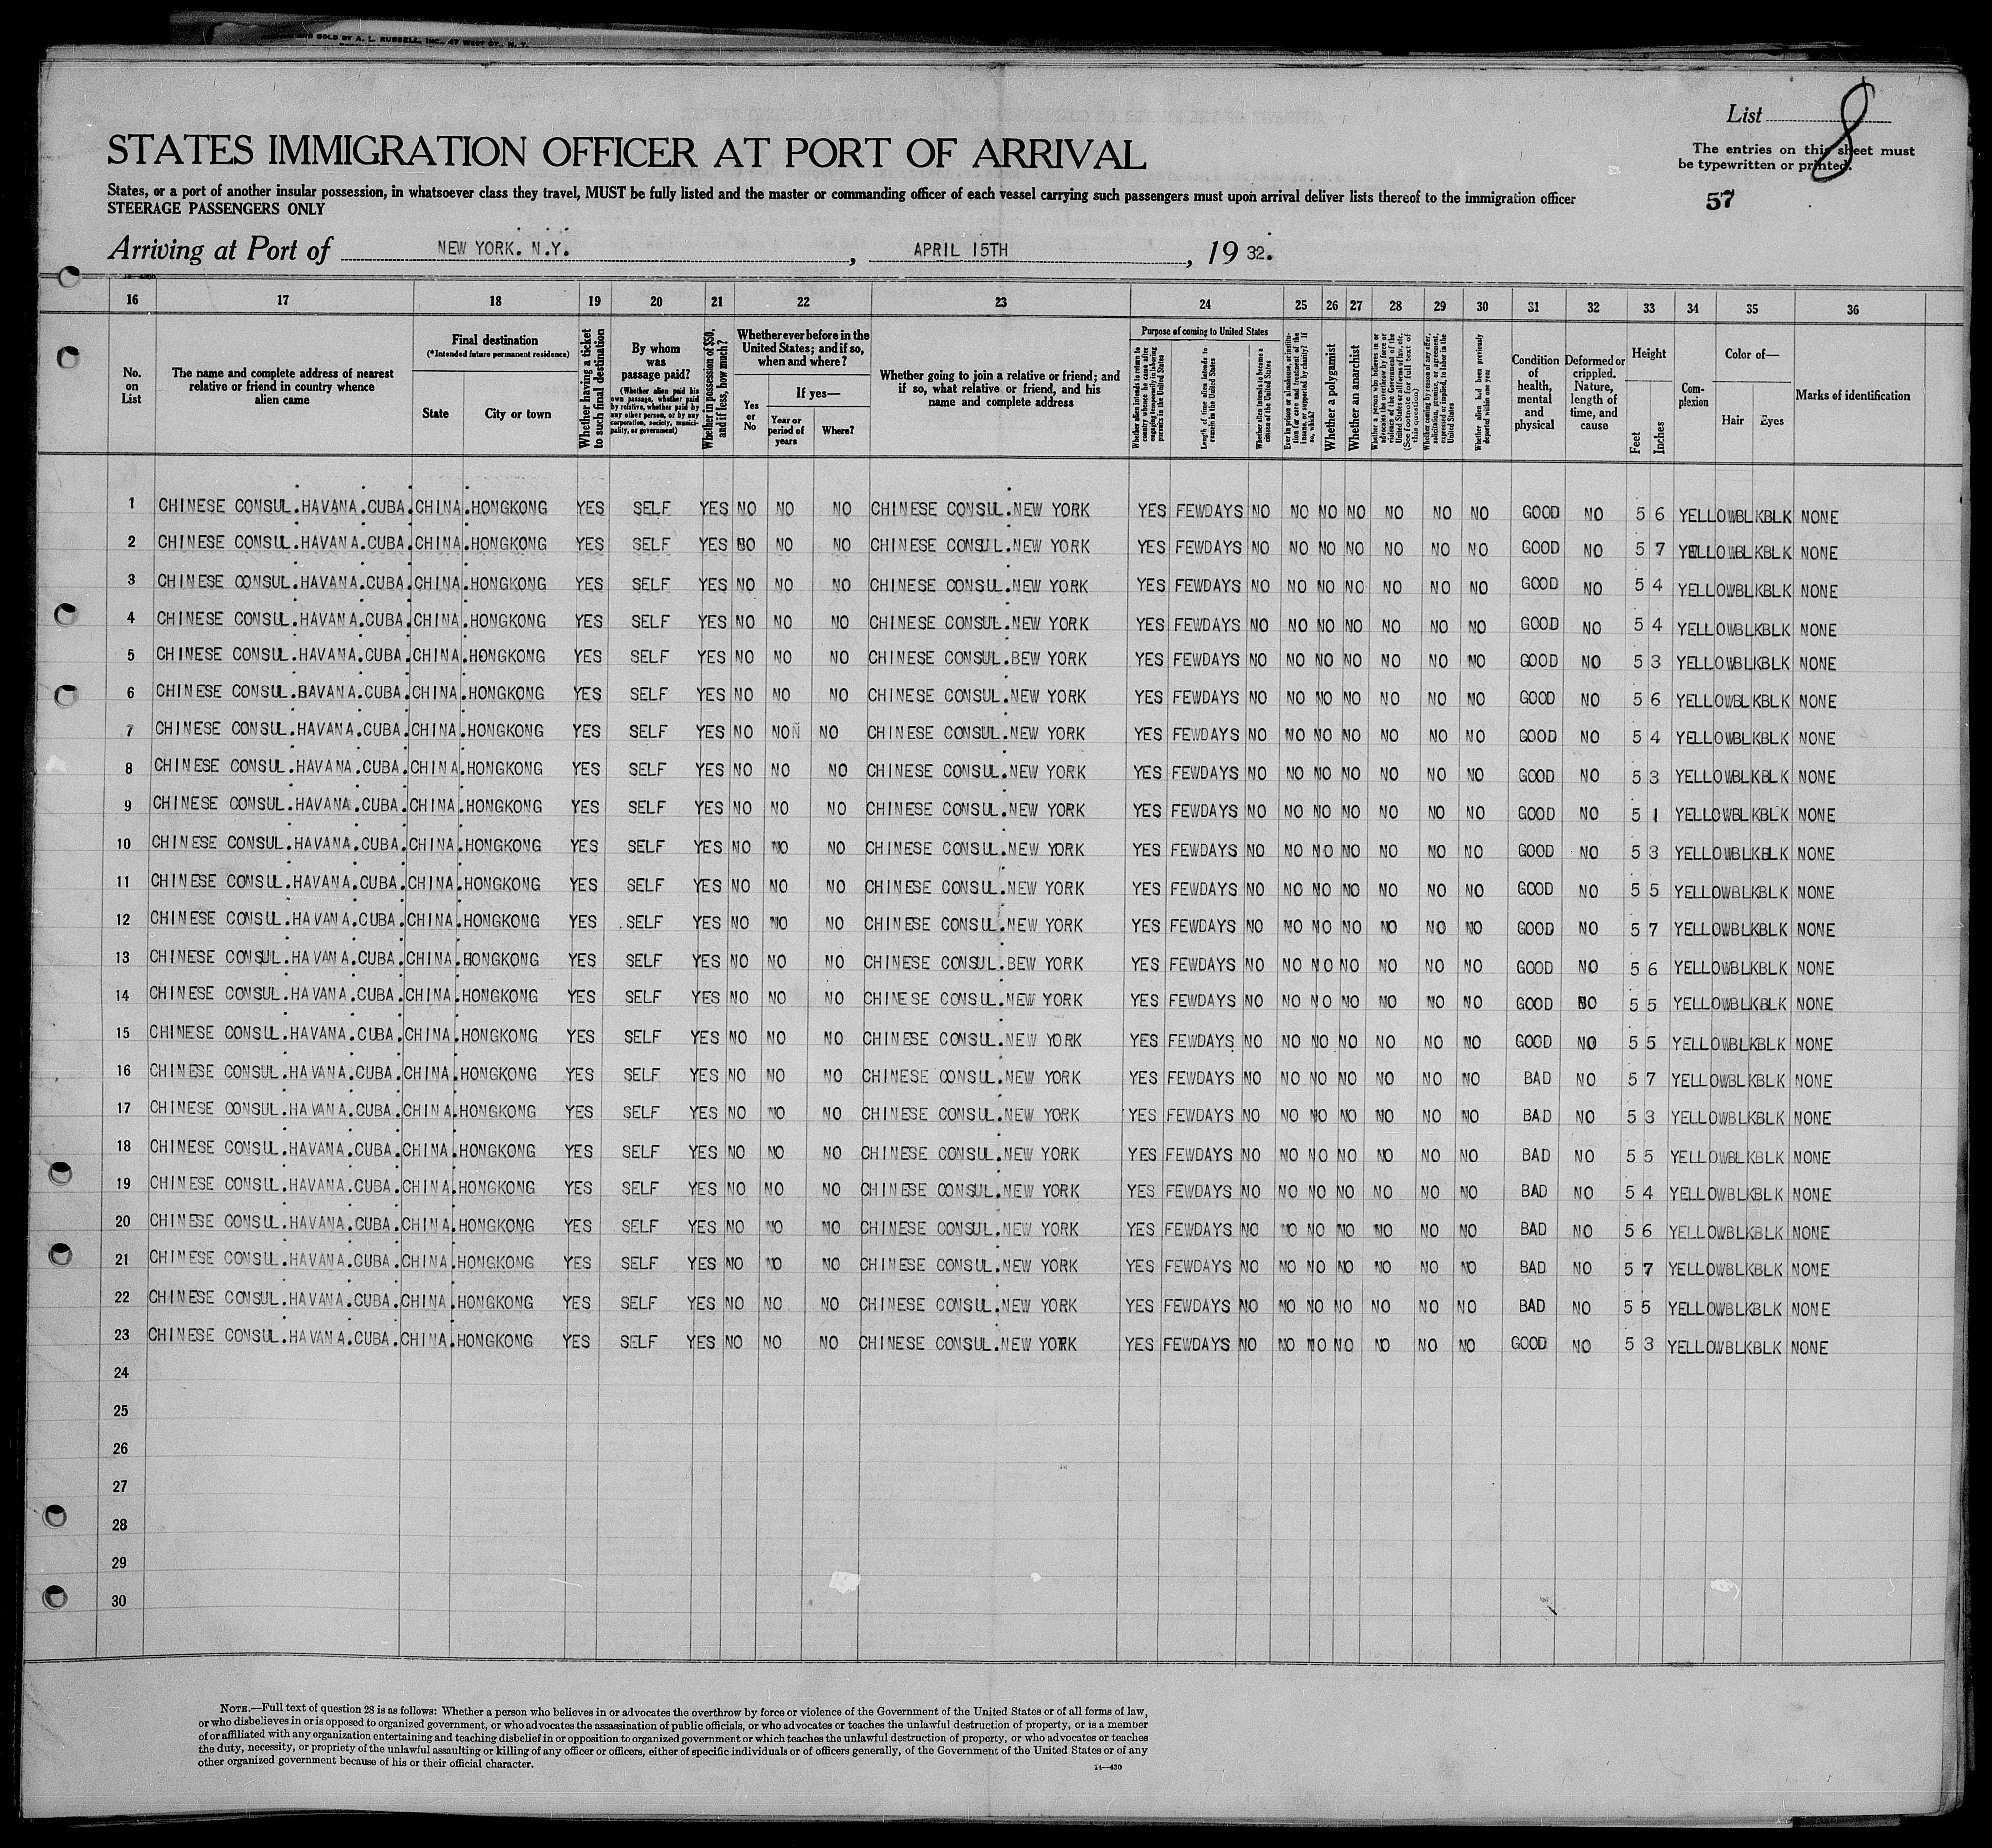 AND SOLD BY A. L. RUSSELL, INC., 47 WEST ST., N. Y.
List 8
STATES IMMIGRATION OFFICER AT PORT OF ARRIVAL
The entries on this sheet must
be typewritten or printed.
States, or a port of another insular possession, in whatsoever class they travel, MUST be fully listed and the master or commanding officer of each vessel carrying such passengers must upon arrival deliver lists thereof to the immigration officer
STEERAGE PASSENGERS ONLY
57
Arriving at Port of NEW YORK. N.Y. , APRIL 15TH , 19 32.
16 17 18 19 20 21 22 23 24 25 26 27 28 29 30 31 32 33 34 35 36
No. on List
The name and complete address of nearest relative or friend in country whence alien came
Final destination
(*Intended future permanent residence)
State
City or town
Whether having a ticket to such final destination
By whom was passage paid?
(Whether alien paid his own passage, whether paid by relative, whether paid by any other person, or by any corporation, society, municipality, or government)
Whether in possession of $50, and if less, how much?
Whether ever before in the United States; and if so, when and where?
Yes or No
If yes—
Year or period of years
Where?
Whether going to join a relative or friend; and if so, what relative or friend, and his name and complete address
Purpose of coming to United States
Whether alien intends to return to country whence he came after engaging temporarily in laboring pursuits in the United States
Length of time alien intends to remain in the United States
Whether alien intends to become a citizen of the United States
Ever in prison or almshouse, or institution for care and treatment of the insane, or supported by charity? If so, which?
Whether a polygamist
Whether an anarchist
Whether a person who believes in or advocates the overthrow by force or violence of the Government of the United States or all forms of law, etc. (See footnote for full text of this question)
Whether coming by reason of any offer, solicitation, promise, or agreement, expressed or implied, to labor in the United States
Whether alien had been previously deported within one year
Condition of health, mental and physical
Deformed or crippled. Nature, length of time, and cause
Height
Feet
Inches
Complexion
Color of—
Hair
Eyes
Marks of identification
1 CHINESE CONSUL.HAVANA.CUBA.CHINA.HONGKONG YES SELF YES NO NO NO CHINESE CONSUL.NEW YORK YES FEWDAYS NO NO NO NO NO NO NO GOOD NO 5 6 YELLOWBLKBLK NONE
2 CHINESE CONSUL.HAVANA.CUBA.CHINA.HONGKONG YES SELF YES NO NO NO CHINESE CONSUL.NEW YORK YES FEWDAYS NO NO NO NO NO NO NO GOOD NO 5 7 YELLOWBLKBLK NONE
3 CHINESE CONSUL.HAVANA.CUBA.CHINA.HONGKONG YES SELF YES NO NO NO CHINESE CONSUL.NEW YORK YES FEWDAYS NO NO NO NO NO NO NO GOOD NO 5 4 YELLOWBLKBLK NONE
4 CHINESE CONSUL.HAVANA.CUBA.CHINA.HONGKONG YES SELF YES NO NO NO CHINESE CONSUL.NEW YORK YES FEWDAYS NO NO NO NO NO NO NO GOOD NO 5 4 YELLOWBLKBLK NONE
5 CHINESE CONSUL.HAVANA.CUBA.CHINA.HONGKONG YES SELF YES NO NO NO CHINESE CONSUL.BEW YORK YES FEWDAYS NO NO NO NO NO NO NO GOOD NO 5 3 YELLOWBLKBLK NONE
6 CHINESE CONSUL.BAVANA.CUBA.CHINA.HONGKONG YES SELF YES NO NO NO CHINESE CONSUL.NEW YORK YES FEWDAYS NO NO NO NO NO NO NO GOOD NO 5 6 YELLOWBLKBLK NONE
7 CHINESE CONSUL.HAVANA.CUBA.CHINA.HONGKONG YES SELF YES NO NON NO CHINESE CONSUL.NEW YORK YES FEWDAYS NO NO NO NO NO NO NO GOOD NO 5 4 YELLOWBLKBLK NONE
8 CHINESE CONSUL.HAVANA.CUBA.CHINA.HONGKONG YES SELF YES NO NO NO CHINESE CONSUL.NEW YORK YES FEWDAYS NO NO NO NO NO NO NO GOOD NO 5 3 YELLOWBLKBLK NONE
9 CHINESE CONSUL.HAVANA.CUBA.CHINA.HONGKONG YES SELF YES NO NO NO CHINESE CONSUL.NEW YORK YES FEWDAYS NO NO NO NO NO NO NO GOOD NO 5 1 YELLOWBLKBLK NONE
10 CHINESE CONSUL.HAVANA.CUBA.CHINA.HONGKONG YES SELF YES NO NO NO CHINESE CONSUL.NEW YORK YES FEWDAYS NO NO NO NO NO NO NO GOOD NO 5 3 YELLOWBLKBLK NONE
11 CHINESE CONSUL.HAVANA.CUBA.CHINA.HONGKONG YES SELF YES NO NO NO CHINESE CONSUL.NEW YORK YES FEWDAYS NO NO NO NO NO NO NO GOOD NO 5 5 YELLOWBLKBLK NONE
12 CHINESE CONSUL.HAVANA.CUBA.CHINA.HONGKONG YES SELF YES NO NO NO CHINESE CONSUL.NEW YORK YES FEWDAYS NO NO NO NO NO NO NO GOOD NO 5 7 YELLOWBLKBLK NONE
13 CHINESE CONSUL.HAVANA.CUBA.CHINA.HONGKONG YES SELF YES NO NO NO CHINESE CONSUL.BEW YORK YES FEWDAYS NO NO NO NO NO NO NO GOOD NO 5 6 YELLOWBLKBLK NONE
14 CHINESE CONSUL.HAVANA.CUBA.CHINA.HONGKONG YES SELF YES NO NO NO CHINESE CONSUL.NEW YORK YES FEWDAYS NO NO NO NO NO NO NO GOOD NO 5 5 YELLOWBLKBLK NONE
15 CHINESE CONSUL.HAVANA.CUBA.CHINA.HONGKONG YES SELF YES NO NO NO CHINESE CONSUL.NEW YORK YES FEWDAYS NO NO NO NO NO NO NO GOOD NO 5 5 YELLOWBLKBLK NONE
16 CHINESE CONSUL.HAVANA.CUBA.CHINA.HONGKONG YES SELF YES NO NO NO CHINESE CONSUL.NEW YORK YES FEWDAYS NO NO NO NO NO NO NO BAD NO 5 7 YELLOWBLKBLK NONE
17 CHINESE CONSUL.HAVANA.CUBA.CHINA.HONGKONG YES SELF YES NO NO NO CHINESE CONSUL.NEW YORK YES FEWDAYS NO NO NO NO NO NO NO BAD NO 5 3 YELLOWBLKBLK NONE
18 CHINESE CONSUL.HAVANA.CUBA.CHINA.HONGKONG YES SELF YES NO NO NO CHINESE CONSUL.NEW YORK YES FEWDAYS NO NO NO NO NO NO NO BAD NO 5 5 YELLOWBLKBLK NONE
19 CHINESE CONSUL.HAVANA.CUBA.CHINA.HONGKONG YES SELF YES NO NO NO CHINESE CONSUL.NEW YORK YES FEWDAYS NO NO NO NO NO NO NO BAD NO 5 4 YELLOWBLKBLK NONE
20 CHINESE CONSUL.HAVANA.CUBA.CHINA.HONGKONG YES SELF YES NO NO NO CHINESE CONSUL.NEW YORK YES FEWDAYS NO NO NO NO NO NO NO BAD NO 5 6 YELLOWBLKBLK NONE
21 CHINESE CONSUL.HAVANA.CUBA.CHINA.HONGKONG YES SELF YES NO NO NO CHINESE CONSUL.NEW YORK YES FEWDAYS NO NO NO NO NO NO NO BAD NO 5 7 YELLOWBLKBLK NONE
22 CHINESE CONSUL.HAVANA.CUBA.CHINA.HONGKONG YES SELF YES NO NO NO CHINESE CONSUL.NEW YORK YES FEWDAYS NO NO NO NO NO NO NO BAD NO 5 5 YELLOWBLKBLK NONE
23 CHINESE CONSUL.HAVANA.CUBA.CHINA.HONGKONG YES SELF YES NO NO NO CHINESE CONSUL.NEW YORK YES FEWDAYS NO NO NO NO NO NO NO GOOD NO 5 3 YELLOWBLKBLK NONE
24
25
26
27
28
29
30
NOTE.—Full text of question 28 is as follows: Whether a person who believes in or advocates the overthrow by force or violence of the Government of the United States or of all forms of law,
or who disbelieves in or is opposed to organized government, or who advocates the assassination of public officials, or who advocates or teaches the unlawful destruction of property, or is a member
of or affiliated with any organization entertaining and teaching disbelief in or opposition to organized government or which teaches the unlawful destruction of property, or who advocates or teaches
the duty, necessity, or propriety of the unlawful assaulting or killing of any officer or officers, either of specific individuals or of officers generally, of the Government of the United States or of any
other organized government because of his or their official character.
14—430